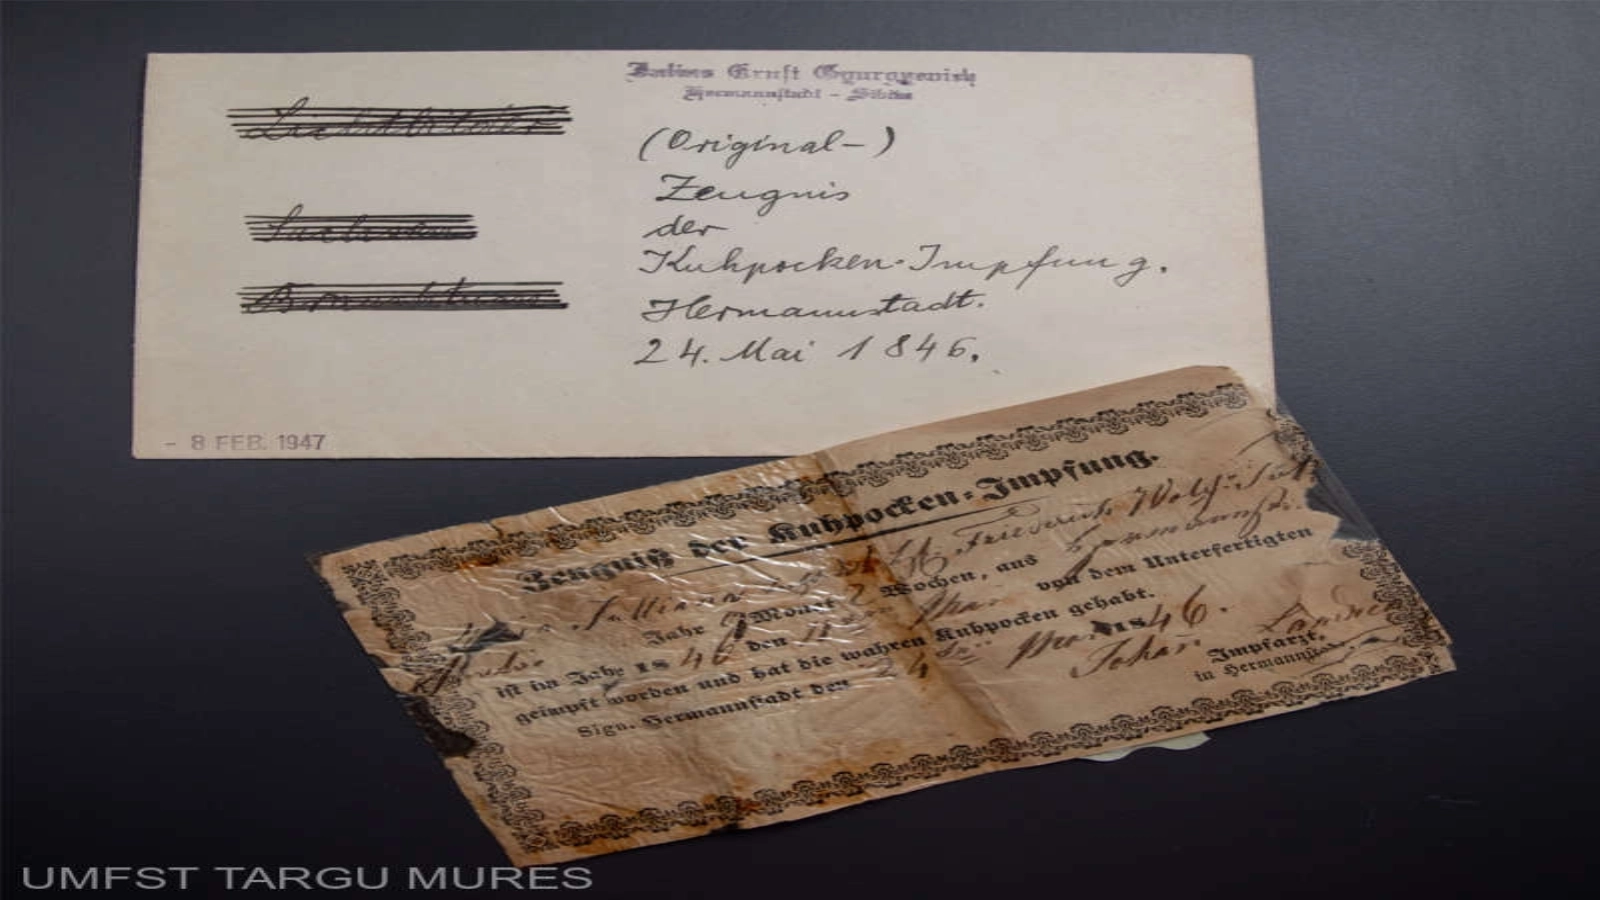 Julius Ernst Gyurgyevich
Hermannstadt - Sibiu
(Original-)
Zeugnis
der
Kuhpocken-Impfung.
Hermannstadt.
24. Mai 1846.
- 8 FEB. 1947
Zeugniß der Kuhpocken-Impfung.
Friedrich
Jahr Monat 2 Wochen, aus
ist im Jahr 1846 den 11 Mai von dem Unterfertigten
geimpft worden und hat die wahren Kuhpocken gehabt.
Sign. Hermannstadt den 24 Mai 1846.
Johan
Impfarzt,
in Hermannstadt
UMFST TARGU MURES